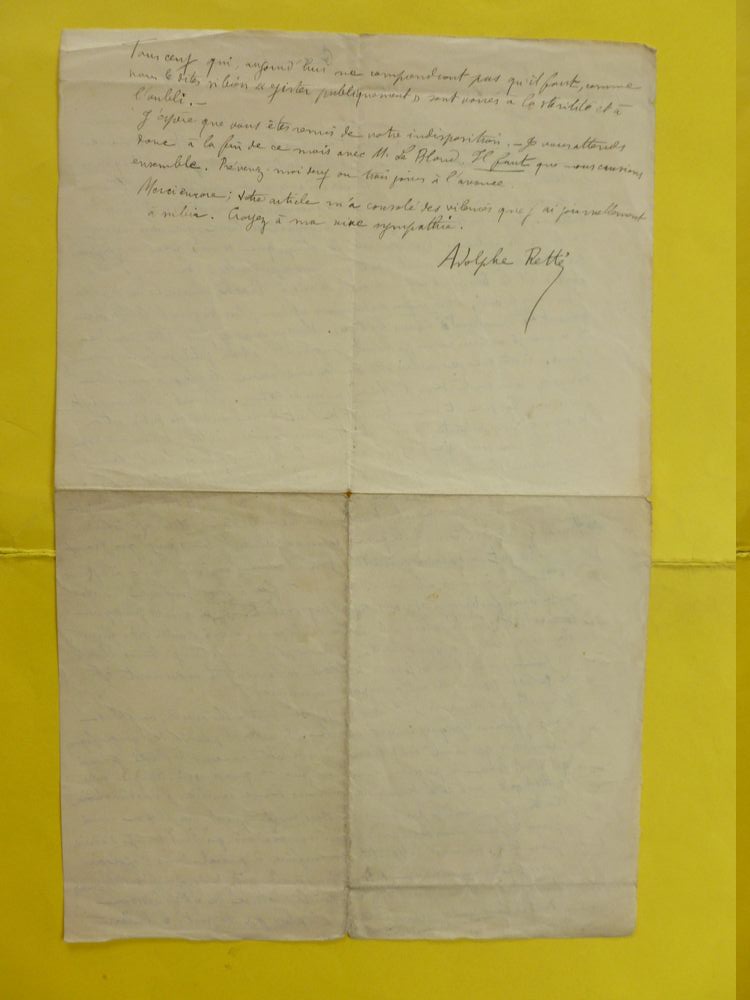 Tous ceux qui, aujourd'hui ne comprendront pas qu'il faut, comme
vous le dites si bien « exister publiquement » sont voués à la stérilité et à
l'oubli. —
J'espère que vous êtes remis de votre indisposition. — Je vous attends
donc à la fin de ce mois avec M. Le Blond. Il faut que nous causions
ensemble. Prévenez-moi deux ou trois jours à l'avance.
Merci encore ; votre article m'a consolé des vilenies que j'ai journellement
à subir. Croyez à ma vive sympathie.
Adolphe Retté